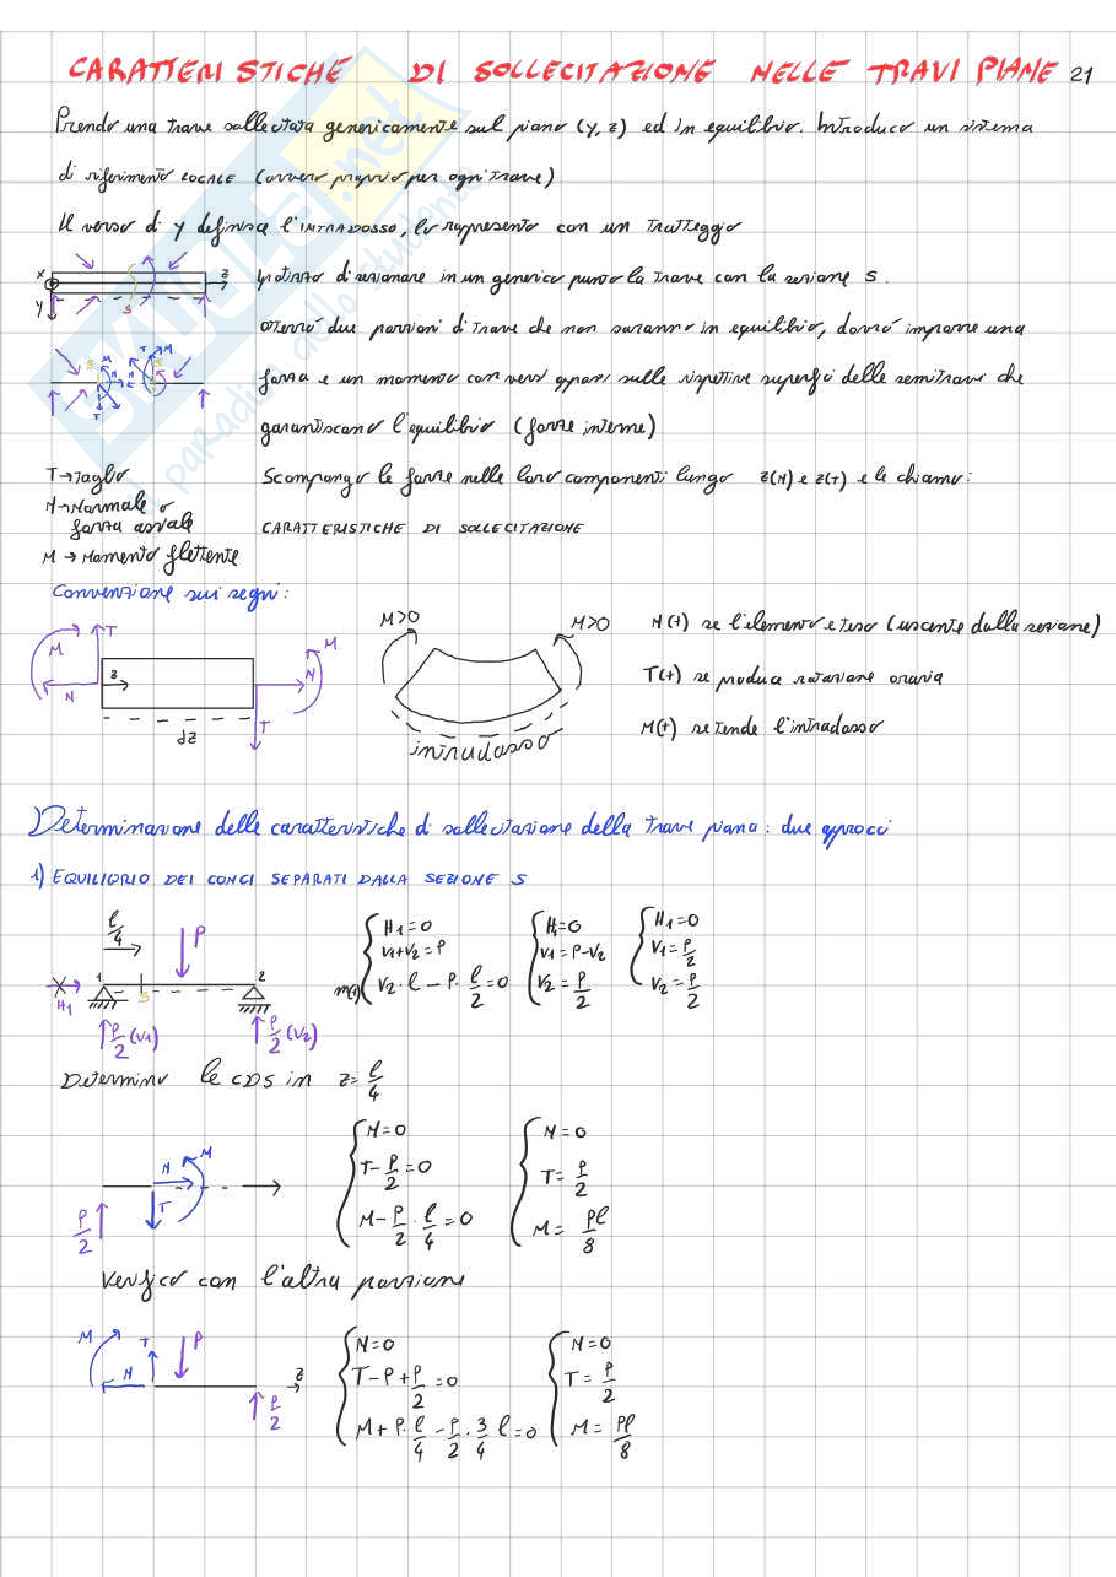 CARATTERISTICHE DI SOLLECITAZIONE NELLE TRAVI PIANE 21
Prendo una trave sollecitata genericamente sul piano (y, z) ed in equilibrio. Introduco un sistema
di riferimento LOCALE (ovvero proprio per ogni trave)
Il verso di y definisce l'INTRADOSSO, lo rappresento con un tratteggio
x z y S
Ipotizzo di sezionare in un generico punto la trave con la sezione S.
otterrò due porzioni di trave che non saranno in equilibrio, dovrò imporre una
forza e un momento con versi opposti sulle rispettive superfici delle semitravi che
garantiscano l'equilibrio (forze interne)
T→Taglio
Scompongo le forze nelle loro componenti lungo z(N) e z(T) e le chiamo:
N→Normale o
forza assiale
CARATTERISTICHE DI SOLLECITAZIONE
M → Momento flettente
Convenzione sui segni:
M T N z dz M N T
M>0 M>0
intradosso
N(+) se l'elemento è teso (uscente dalla sezione)
T(+) se produce rotazione oraria
M(+) se tende l'intradosso
Determinazione delle caratteristiche di sollecitazione della trave piana: due approcci
1) EQUILIBRIO DEI CONCI SEPARATI DALLA SEZIONE S
l/4 P 1 2 S H1
P/2 (V1) P/2 (V2)
H1=0 H1=0 H1=0
V1+V2=P V1=P-V2 V1=P/2
m(1) V2·l - P·l/2=0 V2=P/2 V2=P/2
Determino le CDS in z=l/4
P/2 N M T
N=0 N=0
T-P/2=0 T=P/2
M-P/2·l/4=0 M=Pl/8
Verifico con l'altra porzione
M T N P z P/2
N=0 N=0
T-P+P/2=0 T=P/2
M+P·l/4-P/2·3/4 l=0 M=Pl/8
SKUOLA.net
il paradiso dello studente